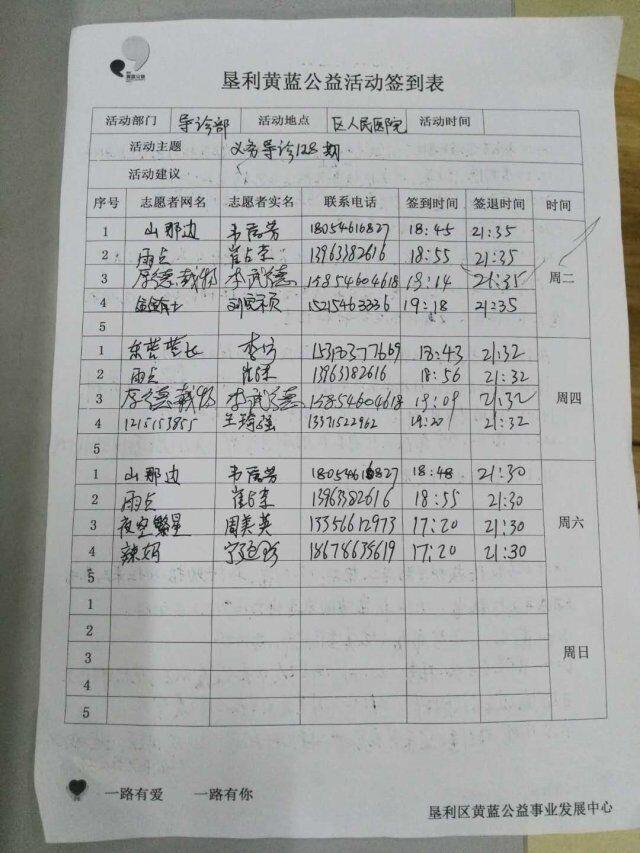 黄蓝公益
垦利黄蓝公益活动签到表
活动部门 导诊部 活动地点 区人民医院 活动时间
活动主题 义务导诊128期
活动建议
序号 志愿者网名 志愿者实名 联系电话 签到时间 签退时间 时间
1 山那边 18054616827 18:45 21:35
2 雨点 13963382616 18:55 21:35
3 厚德载物 李武德 15854604618 19:14 21:35 周二
4 15215463336 19:18 21:35
5
1 18:43 21:32
2 雨点 13963382616 18:56 21:32
3 厚德载物 李武德 15854604618 19:09 21:32 周四
4 1215153855 13371522962 19:20 21:32
5
1 山那边 18054616827 18:48 21:30
2 雨点 13963382616 18:55 21:30
3 夜空繁星 周美英 13356612973 17:20 21:30 周六
4 辣妈 18678635619 17:20 21:30
5
1
2
3 周日
4
5
一路有爱 一路有你
垦利区黄蓝公益事业发展中心